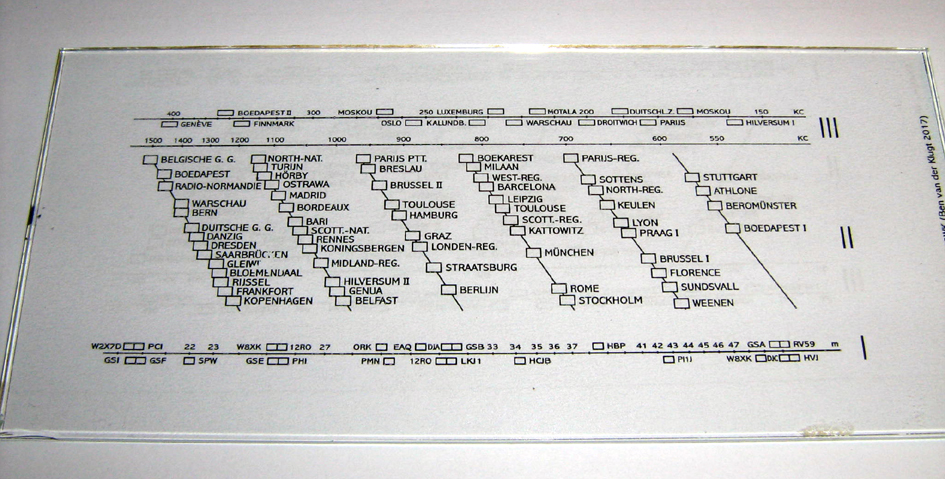 400 BOEDAPEST II 300 MOSKOU 250 LUXEMBURG MOTALA 200 DUITSCHL.Z. MOSKOU 150 KC
GENÈVE FINNMARK OSLO KALUNDB. WARSCHAU DROITWICH PARIJS HILVERSUM I
III
1500 1400 1300 1200 1100 1000 900 800 700 600 550 KC
BELGISCHE G. G.
BOEDAPEST
RADIO-NORMANDIE
WARSCHAU
BERN
DUITSCHE G. G.
DANZIG
DRESDEN
BLOEMENDAAL
RIJSSEL
FRANKFORT
KOPENHAGEN
NORTH-NAT.
TURIJN
HÖRBY
OSTRAWA
MADRID
BORDEAUX
BARI
SCOTT.-NAT.
RENNES
KONINGSBERGEN
MIDLAND-REG.
HILVERSUM II
GENUA
BELFAST
PARIJS PTT.
BRESLAU
BRUSSEL II
TOULOUSE
HAMBURG
GRAZ
LONDEN-REG.
STRAATSBURG
BERLIJN
BOEKAREST
MILAAN
WEST-REG.
BARCELONA
LEIPZIG
TOULOUSE
SCOTT.-REG.
KATTOWITZ
MÜNCHEN
ROME
STOCKHOLM
PARIJS-REG.
SOTTENS
NORTH-REG.
KEULEN
LYON
PRAAG I
BRUSSEL I
FLORENCE
SUNDSVALL
WEENEN
STUTTGART
ATHLONE
BEROMÜNSTER
BOEDAPEST I
II
W2X7D PCI 22 23 W8XK I2RO 27 ORK EAQ DJA GSB 33 34 35 36 37 HBP 41 42 43 44 45 46 47 GSA RV59 m
GSI GSF SPW GSE PHI PMN I2RO LKJ1 HCJB W8XK HVJ
I
(Ben van der Klugt 2017)